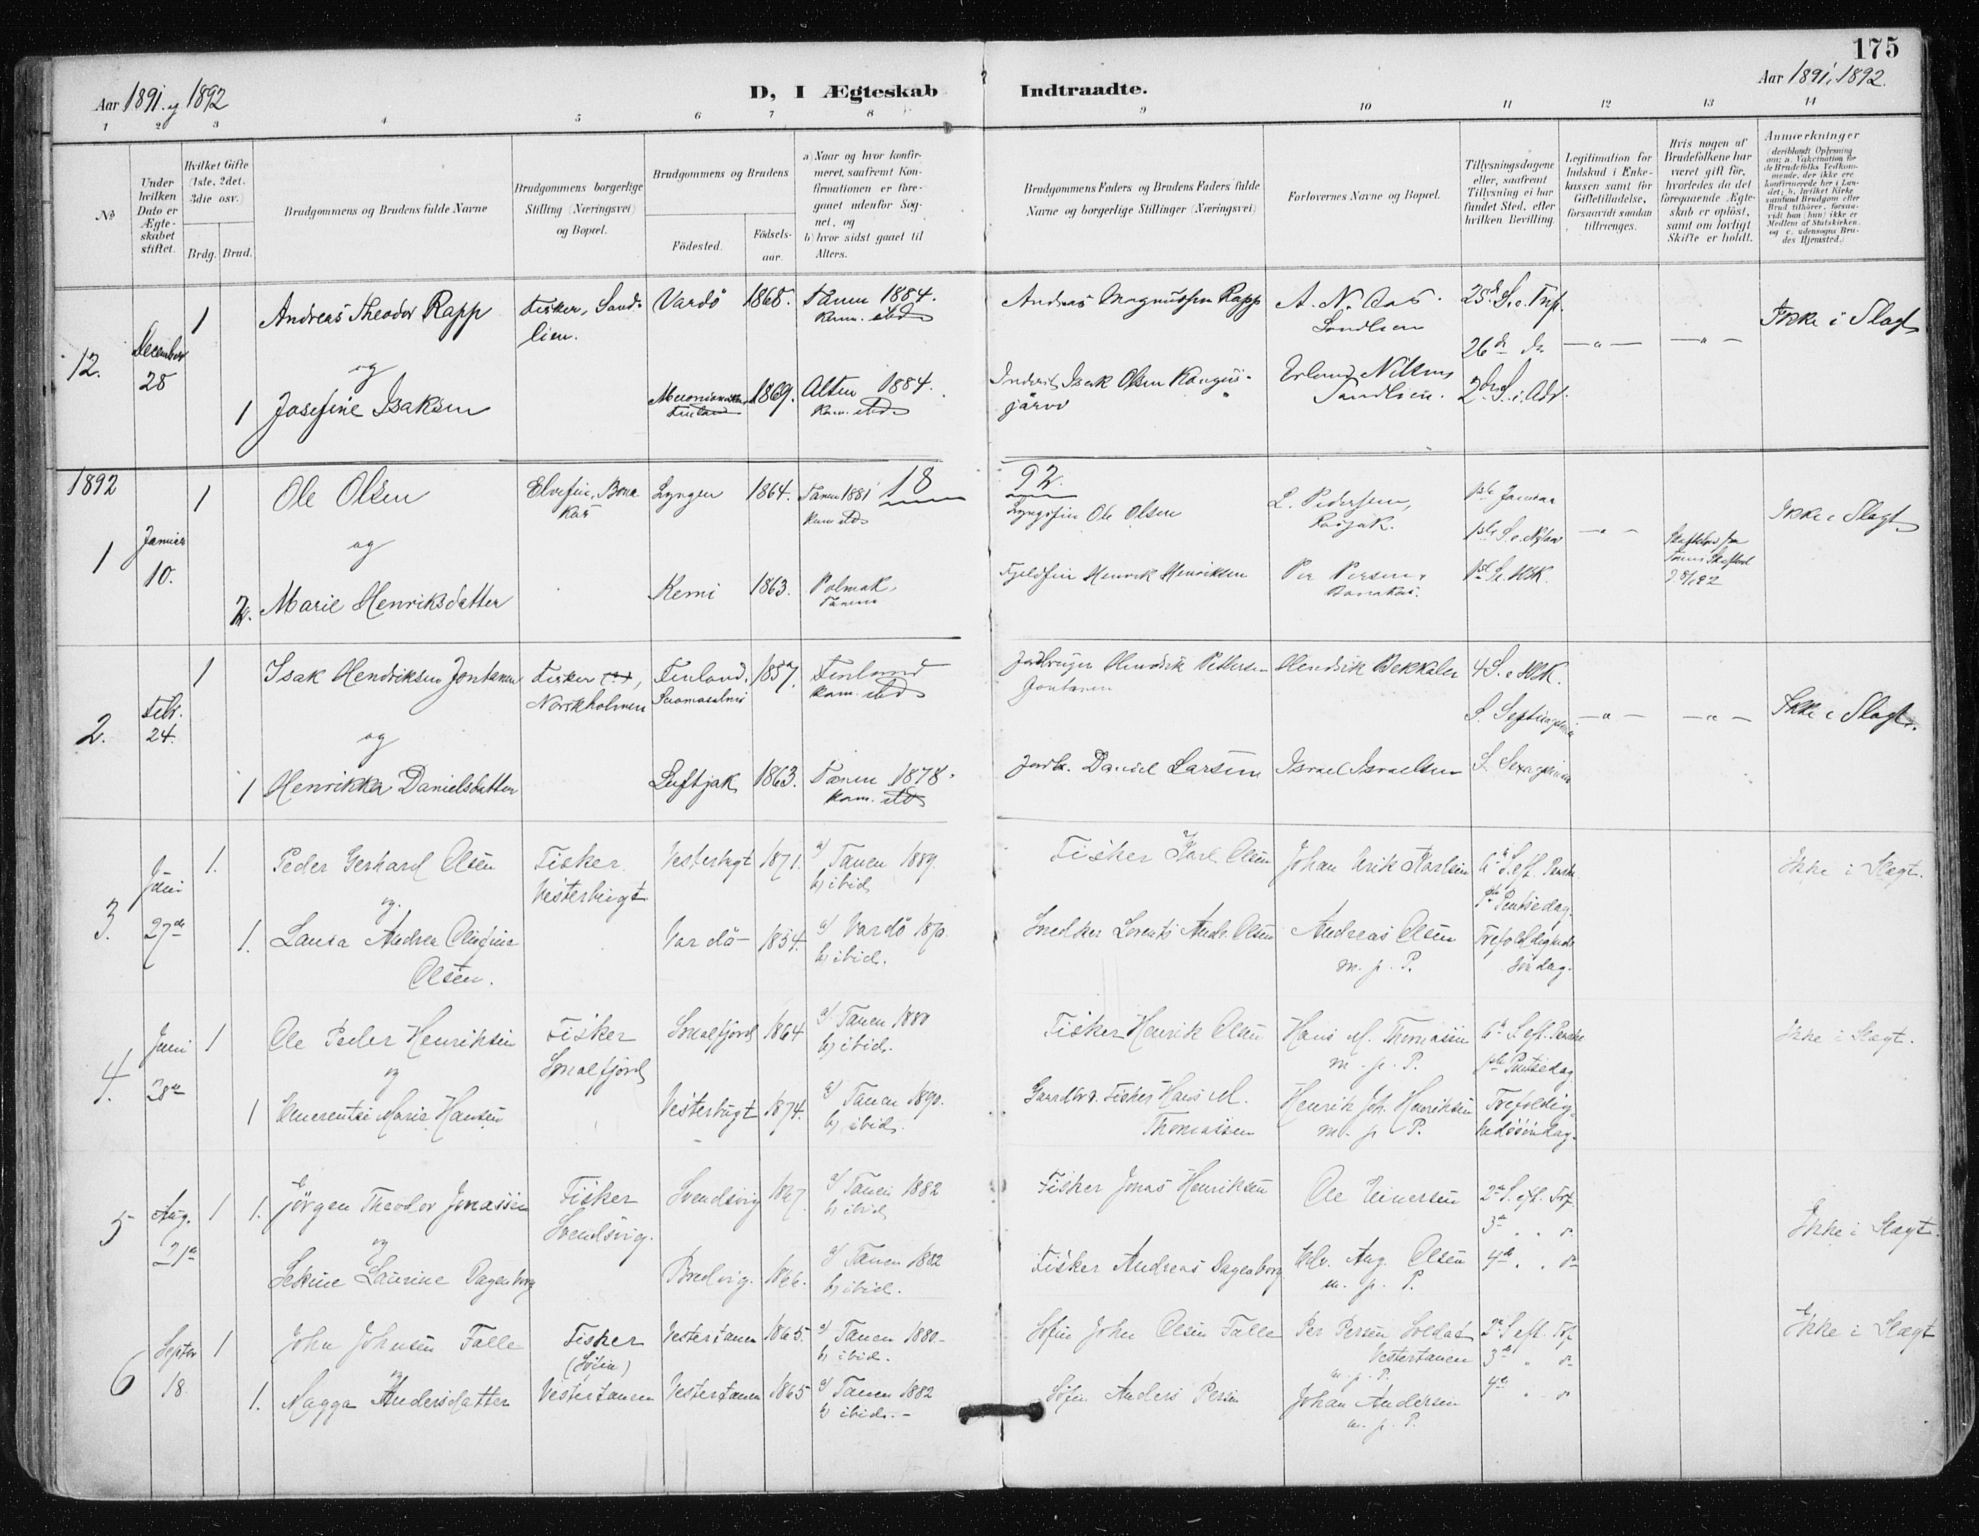 175
Aar 1891 og 1892
D, I Ægteskab Indtraadte.
Aar 1891, 1892.
1 2 3 4 5 6 7 8 9 10 11 12 13 14
No
Under hvilken Dato er Ægteskabet stiftet.
Hvilket Gifte (1ste, 2det, 3die osv.)
Brdg. Brud.
Brudgommens og Brudens fulde Navne
Brudgommens borgerlige Stilling (Næringsvei) og Bopæl.
Brudgommens og Brudens
Födested. Födsels-aar.
a) Naar og hvor konfirmeret, saafremt Konfirmationen er foregaaet udenfor Sognet, og
b) hvor sidst gaaet til Alters.
Brudgommens Faders og Brudens Faders fulde Navne og borgerlige Stillinger (Næringsvei)
Forlovernes Navne og Bopæl.
Tillysningsdagene eller, saafremt Tillysning ei har fundet Sted, efter hvilken Bevilling
Legitimation for Indskud i Enkekassen samt for Giftetilladelse, forsaavidt saadan tiltrænges.
Hvis nogen af Brudefolkene har været gift för, hvorledes da det foregaaende Ægteskab er oplöst, samt om lovligt Skifte er holdt.
Anmærkninger
12. December 28
1 Andreas Theodor Rapp Fisker, Sandlien. Vardö 1868. Tanen 1884. kom. ibd
Andreas Magnussen Rapp A. N. Aas. Sandlien 25de S. e. Tref. Ikke i Slægt
og
26de do
1 Josefine Isaksen Finland 1869. Alten 1884. kom. ibd
Isak Olsen Erland Nilsen Sandlien. 2den S. i Adv.
1892
18 92.
1 Januar 10.
1 Ole Olsen Elvefin, Lyngen 1864. Tanen 1881 kom ibd
Ole Olsen L. Pedersen, Ikke i Slægt
og
2. Marie Henriksdatter Kemi 1863. Polmak, Tanen
Fjeldfin Henrik Henriksen Per Persen,
2. Febr. 24.
1 Isak Hendriksen Jontanen Fisker, Norskholmen Finland, 1857. Finland kom. ibd
Jordbruger Hendrik Pettersen Jontanen Hendrik Bekkala 4 S. e. HK. Ikke i Slægt.
og
S. Septuagesima
1 Henrikka Danielsdatter Luftjok 1863. Tanen 1878. kom. ibd
Jordb. Daniel Larsen Israel Israelsen S. Sexagesima
3. Juni 27de
1. Peder Gerhard Olsen Fisker Vesterbugt Vesterbugt 1871. a) Tanen 1889. b) ibid
Fisker Karl Olsen Johan Erik Karlsen 6te S. eft. Paaske Ikke i Slægt.
og.
1ste Pintsedag.
1. Laura Andrea Olufine Olsen. Vardö 1854. a) Vardö 1870. b) ibid.
Snedker Lorents Andr. Olsen Andreas Olsen m. p. P. Trefoldigheds Söndag.
4. Juni 28de
1 Ole Peder Henriksen Fisker Smalfjord Smalfjord 1864 a) Tanen 1880 b) ibid.
Fisker Henrik Olsen Hans M. Thomassen m. p. P. 6te S. eft. Paaske 1ste Pintsedag Ikke i Slægt.
og
1 Emerentse Marie Hansen Vesterbugt 1874. a) Tanen 1890. b) ibid.
Gaardbr. Fisker Hans M. Thomassen Henrik Joh. Henriksen m. p. P.
5 Aug. 21de
1 1. Jörgen Theodor Jonassen Fisker Svendsvig. Svendsvig 1867. a) Tanen 1882 b) ibid
Fisker Jonas Henriksen Ole Einersen 2den S. eft. Tref. 3de Ikke i Slægt.
og
Sekine Laurine Dagenborg Bredvig. 1866. a) Tanen 1882 b) ibid.
Fisker Andreas Dagenborg Edv. Aug. Olsen m. p. P. 4de
6 Septbr 18.
1 John Johnsen Falle Fisker (Söfin) Vestertanen Vestertanen 1865. a) Tanen 1880. b) ibid.
Söfin John Olsen Falle Per Persen Soldat Vestertanen m. p. P. 2den S. eft. Tref 3de Ikke i Slægt
og
1. Magga Andersdatter Vestertanen 1865 a) Tanen 1882 b) ibid.
Söfin Anders Persen Johan Andersen m. p. P. 4de